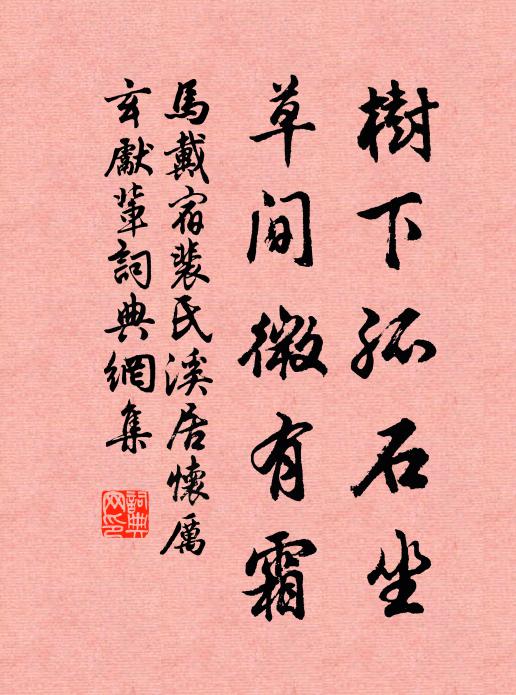 樹下孤石坐
草間微有霜
馬戴宿裴氏溪居懷厲
玄獻輩詞典網集
詞典網印